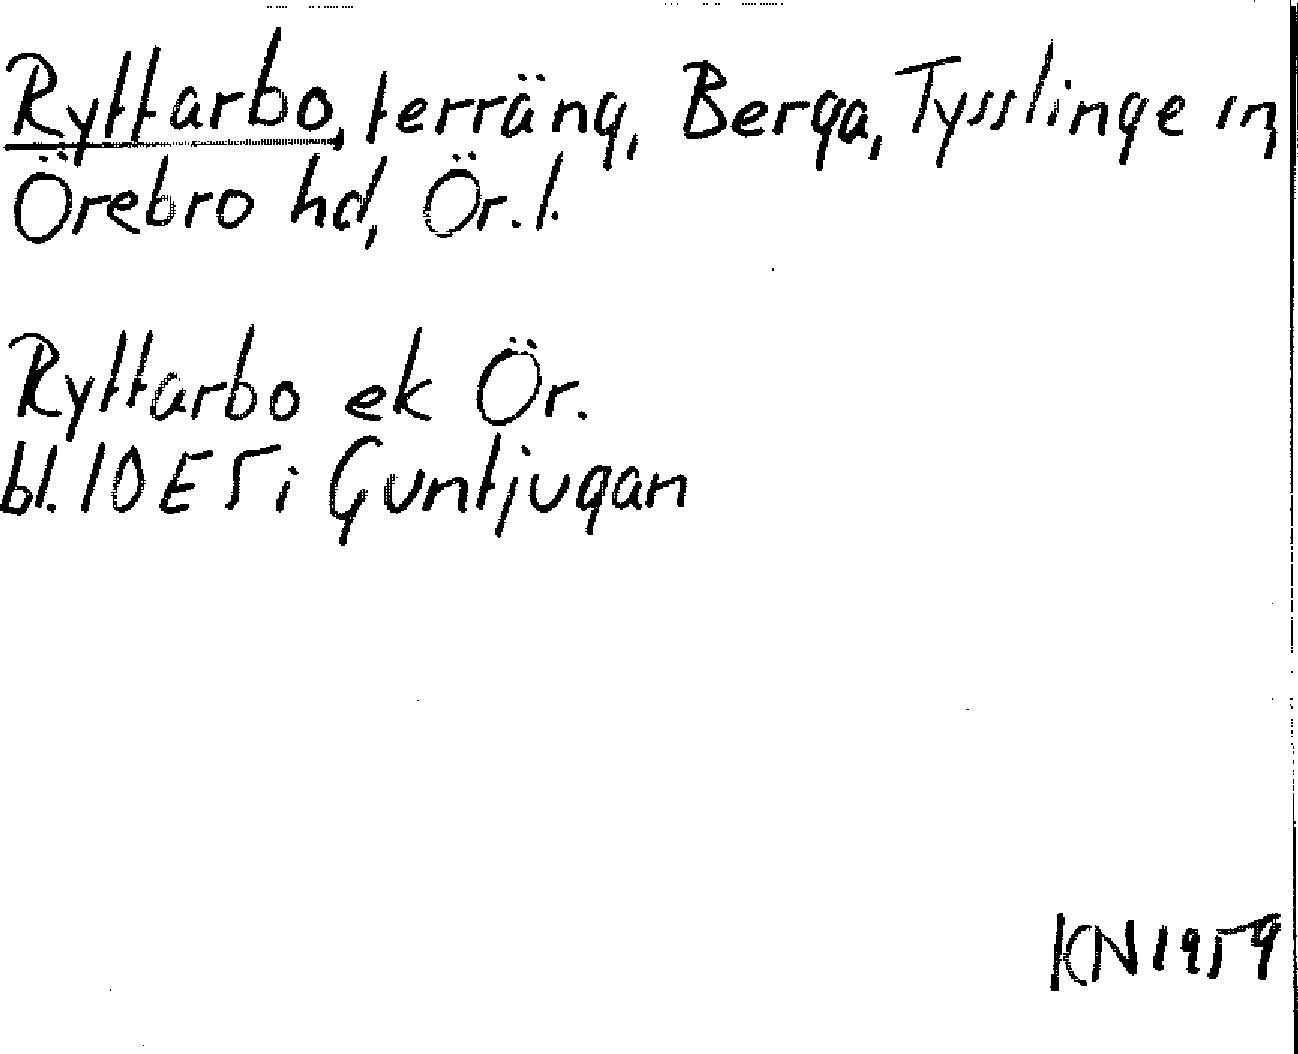 Ryttarbo, terräng, Berga, Tysslinge sn,
Örebro hd, Ör. l.
Ryttarbo ek Ör.
bl. 10E5i Guntjugan
KN1959